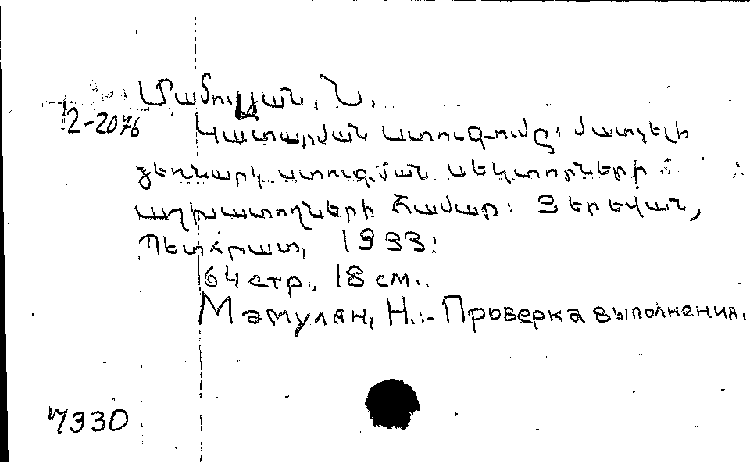 Մամուլյան, Ն.
12-2076 Կատարման ստուգումը: Մատչելի
ձեռնարկ ստուգման սեկտորների
աշխատողների համար: Յերեվան,
Պետհրատ, 1933:
64 стр., 18 см.
Мамулян, Н.:- Проверка выполнения.
7330